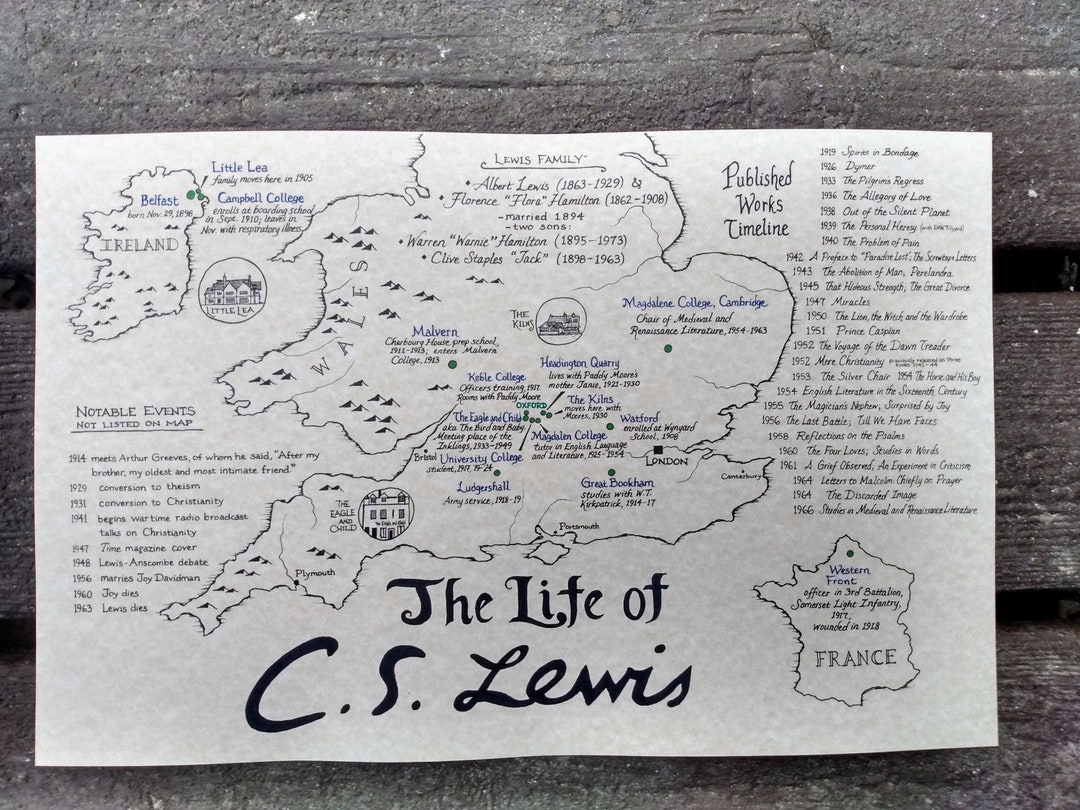 Little Lea
family moves here in 1905
Belfast
born Nov. 29, 1898
Campbell College
enrolls at boarding school
in Sept. 1910; leaves in
Nov. with respiratory illness.
IRELAND
LITTLE LEA
LEWIS FAMILY
Albert Lewis (1863-1929) &
Florence "Flora" Hamilton (1862-1908)
-married 1894
-two sons:
Warren "Warnie" Hamilton (1895-1973)
Clive Staples "Jack" (1898-1963)
WALES
THE
KILNS
Magdalene College, Cambridge
Chair of Medieval and
Renaissance Literature, 1954-1963
Malvern
Cherbourg House prep school,
1911-1913; enters Malvern
College, 1913
Headington Quarry
lives with Paddy Moore's
mother Janie, 1921-1930
Keble College
Officers training, 1917.
Rooms with Paddy Moore
OXFORD
The Kilns
moves here with
Moores, 1930
The Eagle and Child
aka The Bird and Baby.
Meeting place of the
Inklings, 1933-1949
Watford
enrolled at Wynyard
School, 1908
Magdalen College
tutor in English Language
and Literature, 1925-1954
Bristol
University College
student, 1917, 19-24
LONDON
Canterbury
Ludgershall
Army service, 1918-19
Great Bookham
studies with W.T.
Kirkpatrick, 1914-17
THE
EAGLE
AND
CHILD
The Eagle and Child
Portsmouth
Plymouth
Published
Works
Timeline
1919 Spirits in Bondage
1926 Dymer
1933 The Pilgrim's Regress
1936 The Allegory of Love
1938 Out of the Silent Planet
1939 The Personal Heresy (with E.M.W. Tillyard)
1940 The Problem of Pain
1942 A Preface to "Paradise Lost"; The Screwtape Letters
1943 The Abolition of Man; Perelandra
1945 That Hideous Strength; The Great Divorce
1947 Miracles
1950 The Lion, the Witch, and the Wardrobe
1951 Prince Caspian
1952 The Voyage of the Dawn Treader
1952 Mere Christianity previously released as three
books 1942-44
1953 The Silver Chair 1954 The Horse and His Boy
1954 English Literature in the Sixteenth Century
1955 The Magician's Nephew; Surprised by Joy
1956 The Last Battle; Till We Have Faces
1958 Reflections on the Psalms
1960 The Four Loves; Studies in Words
1961 A Grief Observed; An Experiment in Criticism
1964 Letters to Malcolm: Chiefly on Prayer
1964 The Discarded Image
1966 Studies in Medieval and Renaissance Literature
NOTABLE EVENTS
NOT LISTED ON MAP
1914 meets Arthur Greeves, of whom he said, "After my
brother, my oldest and most intimate friend."
1929 conversion to theism
1931 conversion to Christianity
1941 begins wartime radio broadcast
talks on Christianity
1947 Time magazine cover
1948 Lewis-Anscombe debate
1956 marries Joy Davidman
1960 Joy dies
1963 Lewis dies
Western
Front
officer in 3rd Battalion,
Somerset Light Infantry,
1917,
wounded in 1918
FRANCE
The Life of
C.S. Lewis